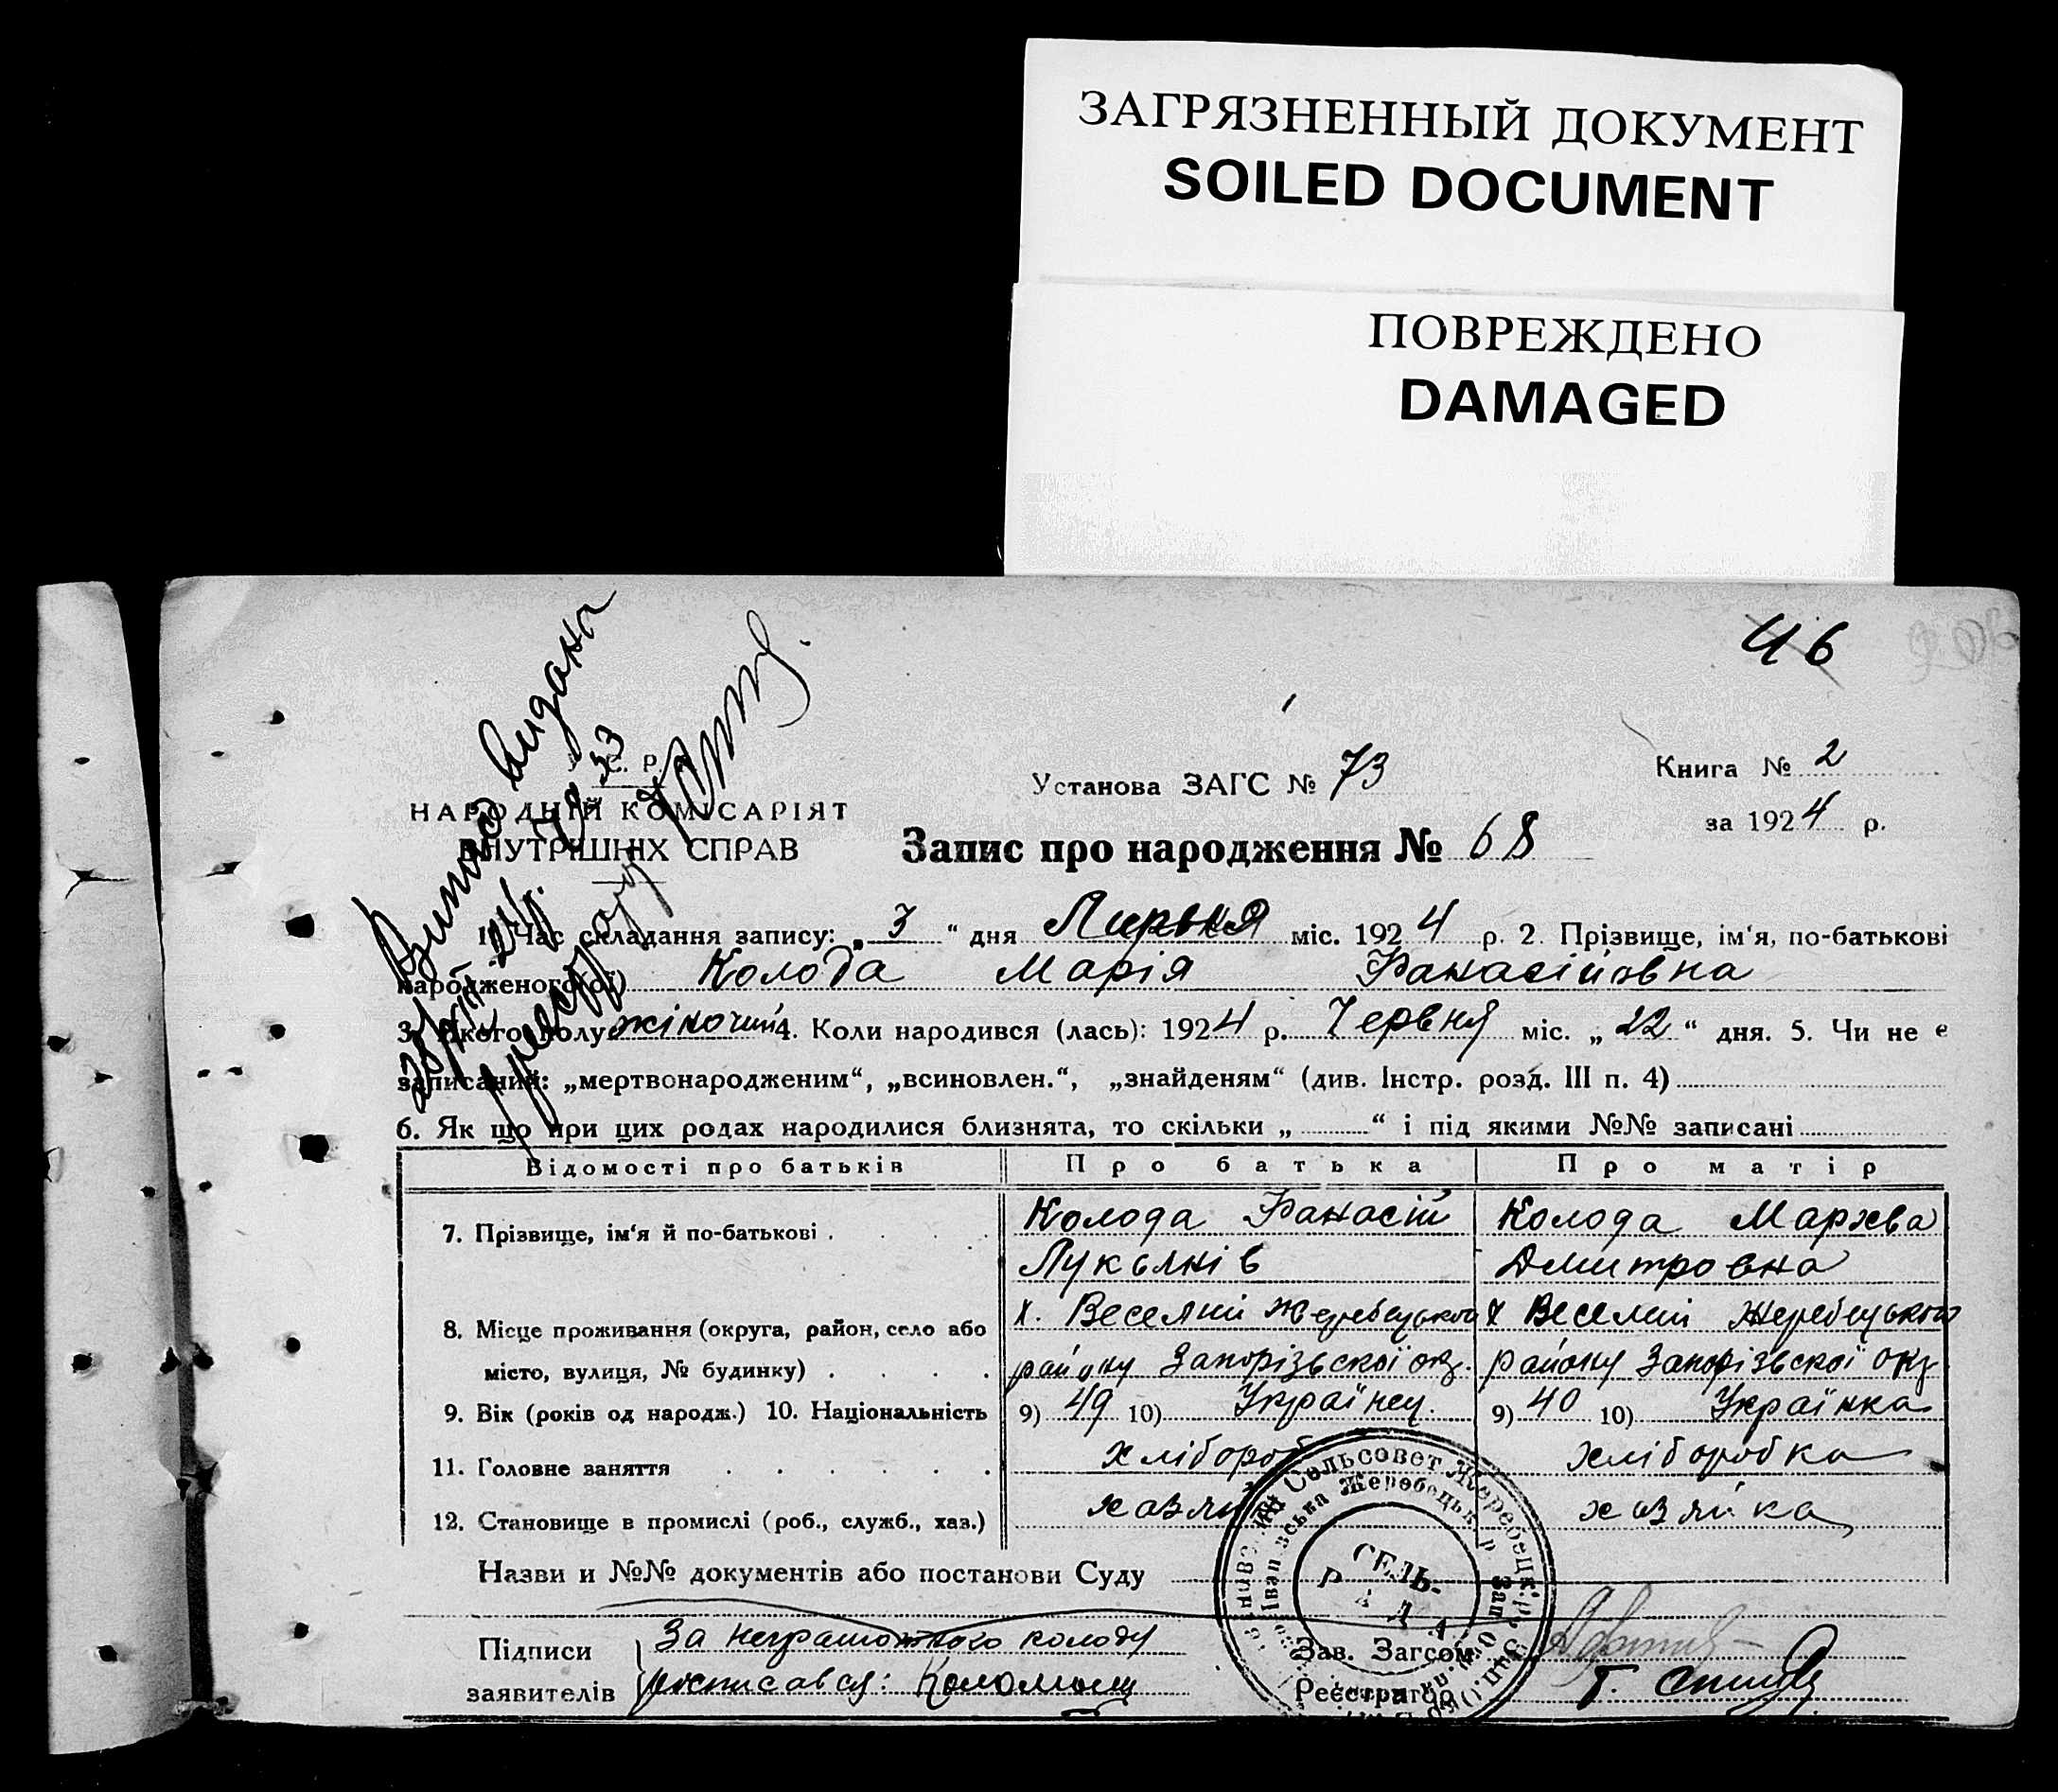 ЗАГРЯЗНЕННЫЙ ДОКУМЕНТ
SOILED DOCUMENT
ПОВРЕЖДЕНО
DAMAGED
46
Витяг видано
С. Р.
НАРОДНІЙ КОМІСАРІЯТ
ВНУТРІШНІХ СПРАВ
Установа ЗАГС № 73
Книга № 2
за 1924 р.
Запис про народження № 68
1. Час складання запису: „3“ дня Липня міс. 1924 р. 2. Прізвище, ім‘я, по-батькові
народженого(ої) Колода Марія Фанасійовна
3. Якого полу жіночий 4. Коли народився (лась): 1924 р. Червня міс. „22“ дня. 5. Чи не є
записаний: „мертвонародженим“, „всиновлен.“, „знайденям“ (див. Інстр. розд. III п. 4)
6. Як що при цих родах народилися близнята, то скільки „ “ і під якими №№ записані
Відомості про батьків Про батька Про матір
7. Прізвище, ім‘я й по-батькові . Колода Фанасій Колода Мархва
Лукьянів Дмитровна
8. Місце проживання (округа, район, село або х. Веселий Жеребецького х Веселий Жеребецького
місто, вулиця, № будинку) району Запорізьскої окр. району Запорізьскої окр
9. Вік (років од народж.) 10. Національність 9) 49 10) Українец. 9) 40 10) Українка
11. Головне заняття хлібороб хліборобка
12. Становище в промислі (роб., служб., хаз.) хазяїн хазяйка
Назви и №№ документів або постанови Суду
Сельсовет Жеребецк.
Жеребецьк. р
СЕЛЬ-
РАДА
Підписи За неграмотного колоду
заявителів росписався:
Зав. Загсом
Реєстратор